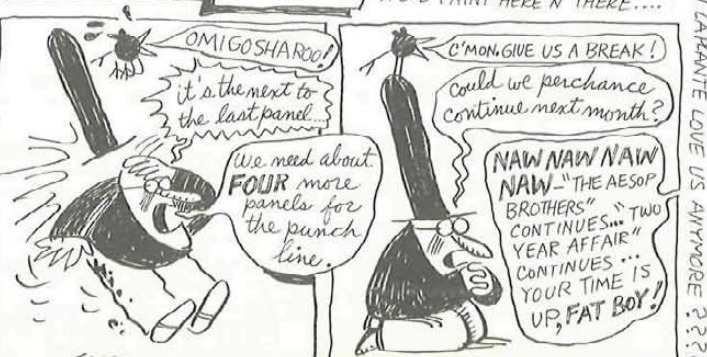 PAINT HERE N' THERE....
OMIGOSHAROO!
it's the next to
the last panel...
We need about
FOUR more
panels for
the punch
line.
C'MON, GIVE US A BREAK!
Could we perchance
continue next month?
NAW NAW NAW
NAW-"THE AESOP
BROTHERS"
CONTINUES... "TWO
YEAR AFFAIR"
CONTINUES...
YOUR TIME IS
UP, FAT BOY!
LOVE US ANYMORE ????